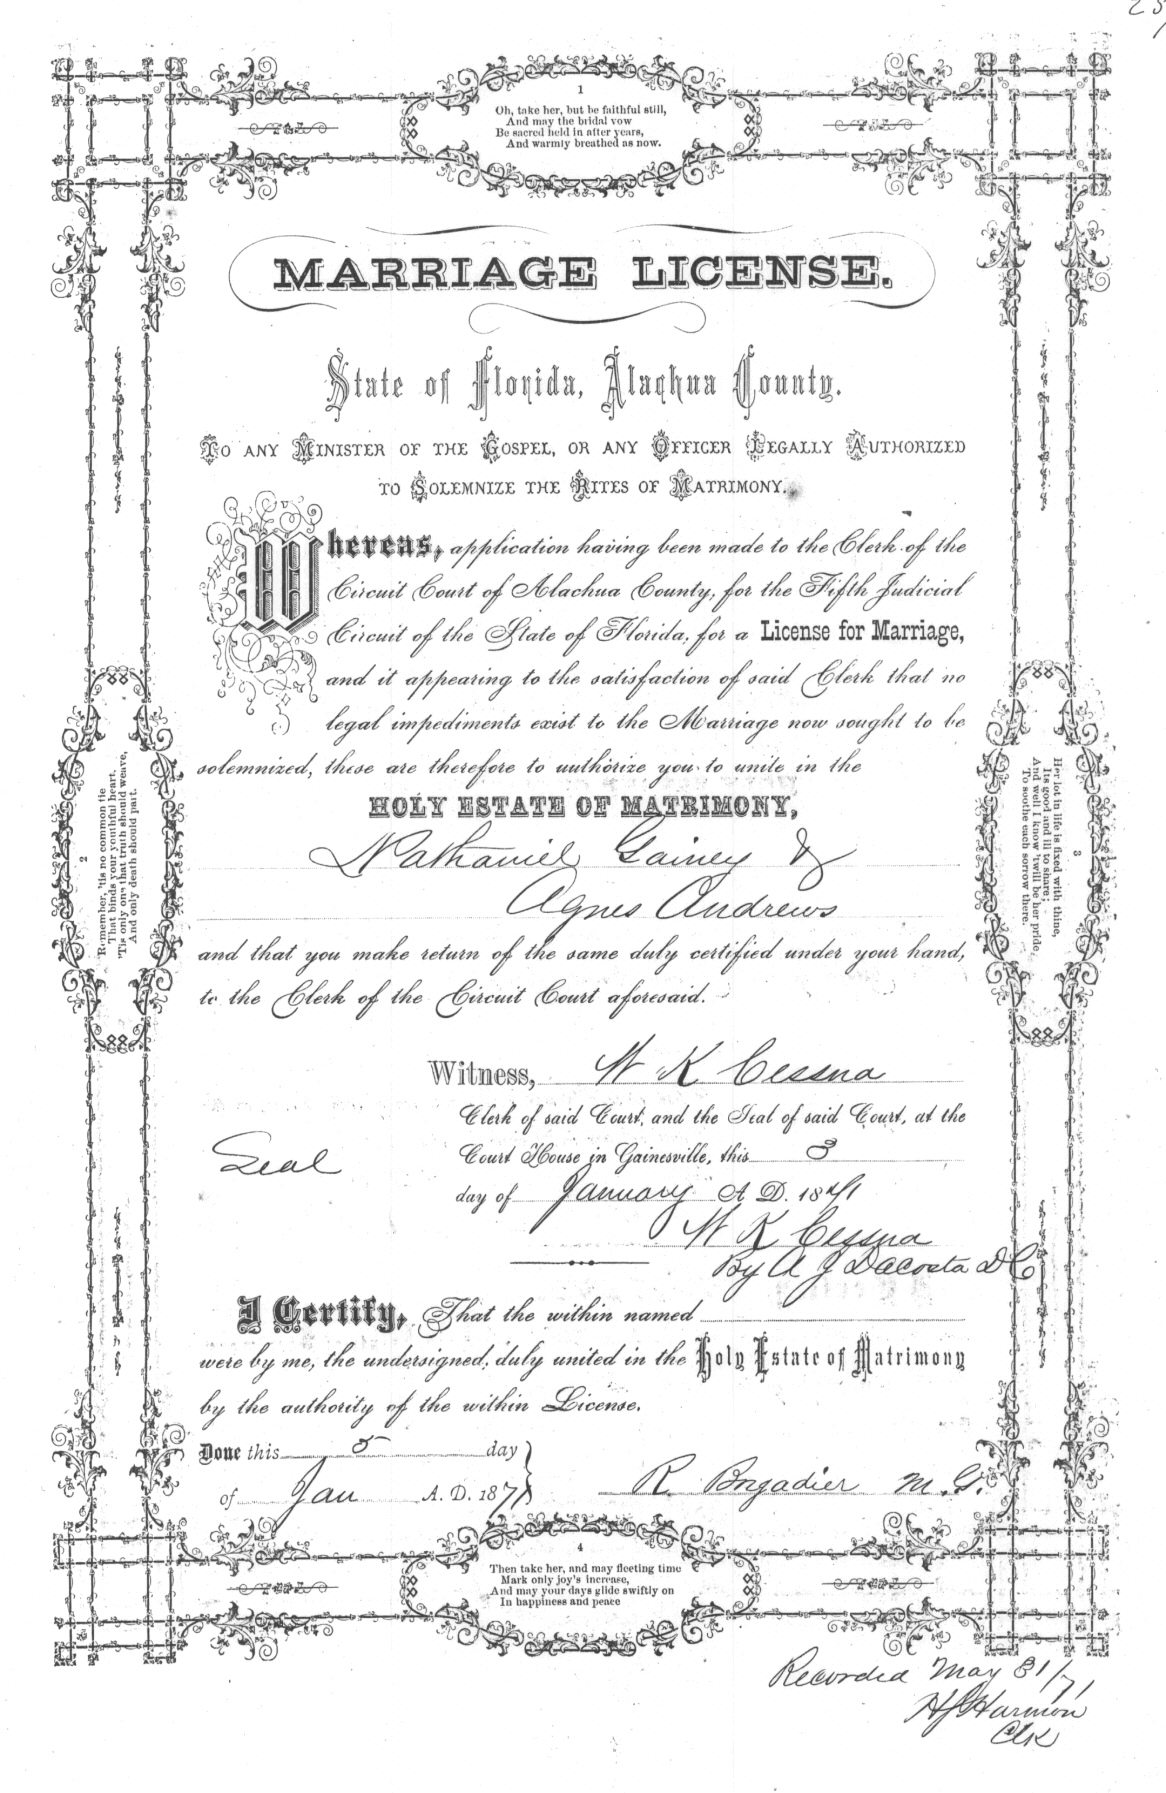 1
Oh, take her, but be faithful still,
And may the bridal vow
Be sacred held in after years,
And warmly breathed as now.
MARRIAGE LICENSE.
State of Florida, Alachua County.
TO ANY MINISTER OF THE GOSPEL, OR ANY OFFICER LEGALLY AUTHORIZED
TO SOLEMNIZE THE RITES OF MATRIMONY.
Whereas, application having been made to the Clerk of the
Circuit Court of Alachua County, for the Fifth Judicial
Circuit of the State of Florida, for a License for Marriage,
and it appearing to the satisfaction of said Clerk that no
legal impediments exist to the Marriage now sought to be
solemnized, these are therefore to authorize you to unite in the
HOLY ESTATE OF MATRIMONY,
Nathaniel Gainey &
Agnes Andrews
and that you make return of the same duly certified under your hand,
to the Clerk of the Circuit Court aforesaid.
Witness, W K Cessna
Clerk of said Court, and the Seal of said Court, at the
Seal
Court House in Gainesville, this 3
day of January A D. 1871
W K Cessna
By A J DaCosta D C
I Certify, That the within named
were by me, the undersigned, duly united in the Holy Estate of Matrimony
by the authority of the within License.
Done this 5 day
of Jan A. D. 1871
R. Brigadier M. G.
2
Remember, 'tis no common tie
That binds your youthful heart.
'Tis only on that truth should weave,
And only death should part.
3
Her lot in life is fixed with thine,
Its good and ill to share;
And well I know 'twill be her pride
To soothe each sorrow there.
4
Then take her, and may fleeting time
Mark only joy's increase,
And may your days glide swiftly on
In happiness and peace
Recorded May 31/71
H J Harmon
Clk